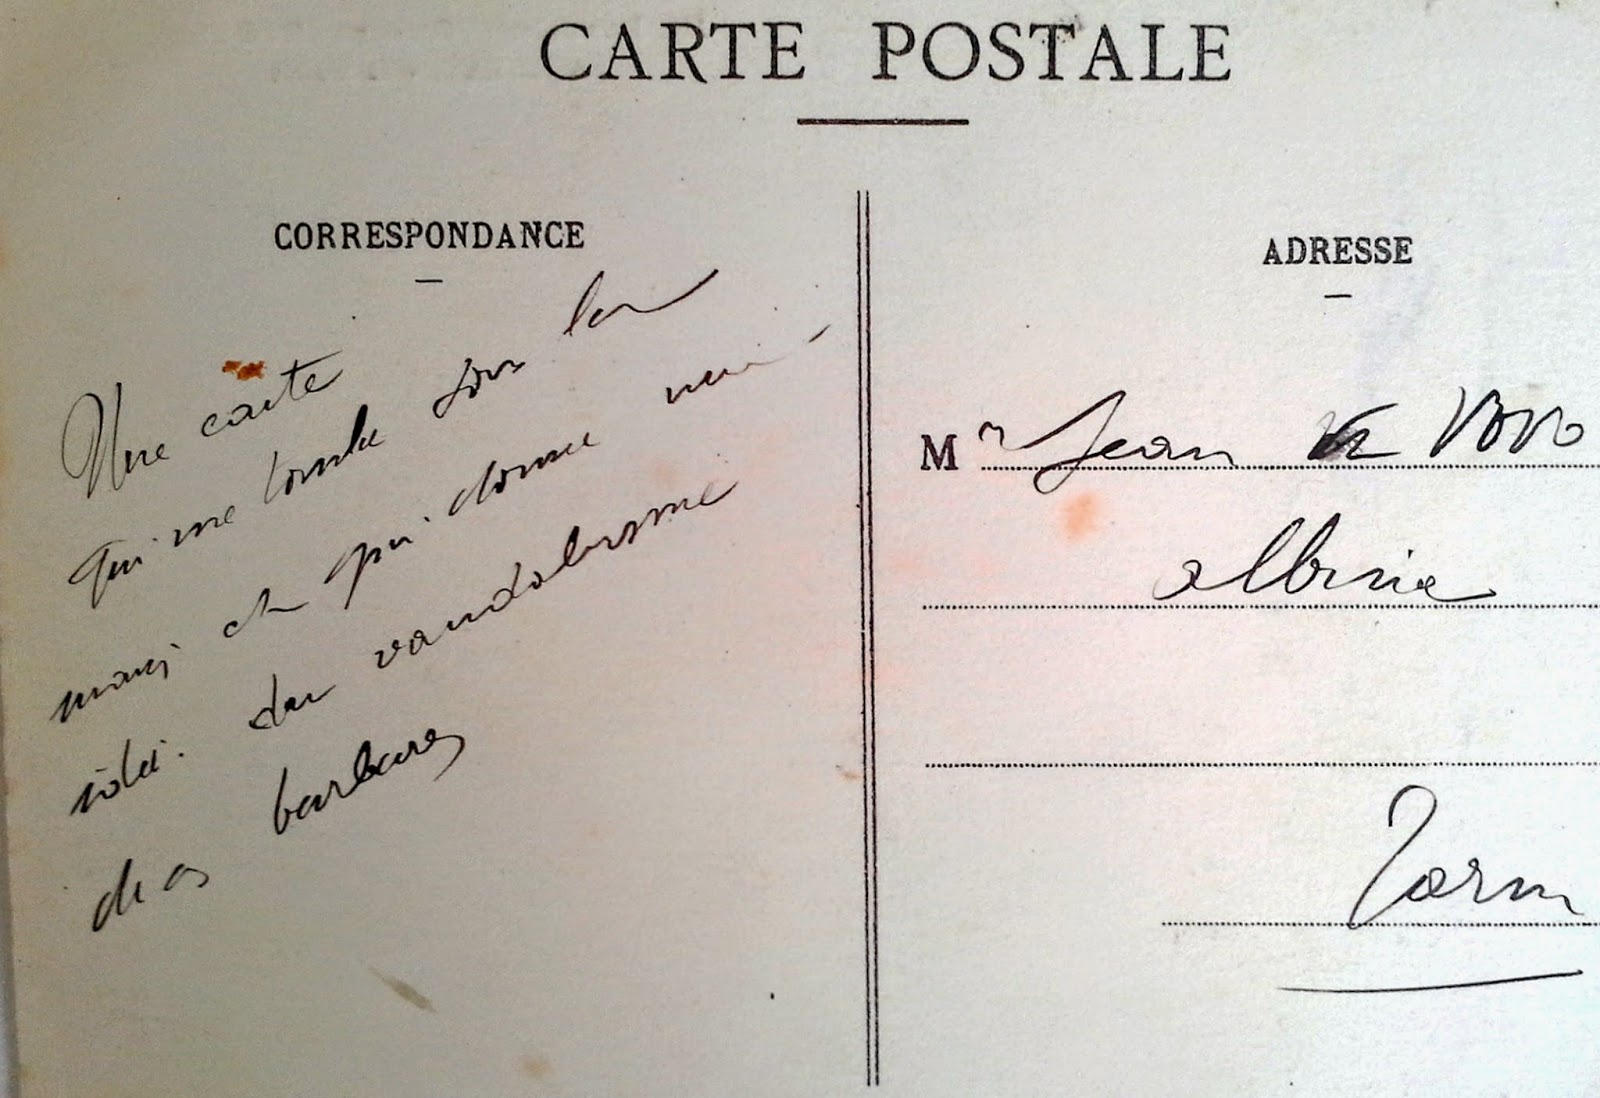 CARTE POSTALE
CORRESPONDANCE
Une carte
qui me tombe sous la
main et qui donne une
idée du vandalisme
des barbares
ADRESSE
Mr Jean
Albine
Tarn